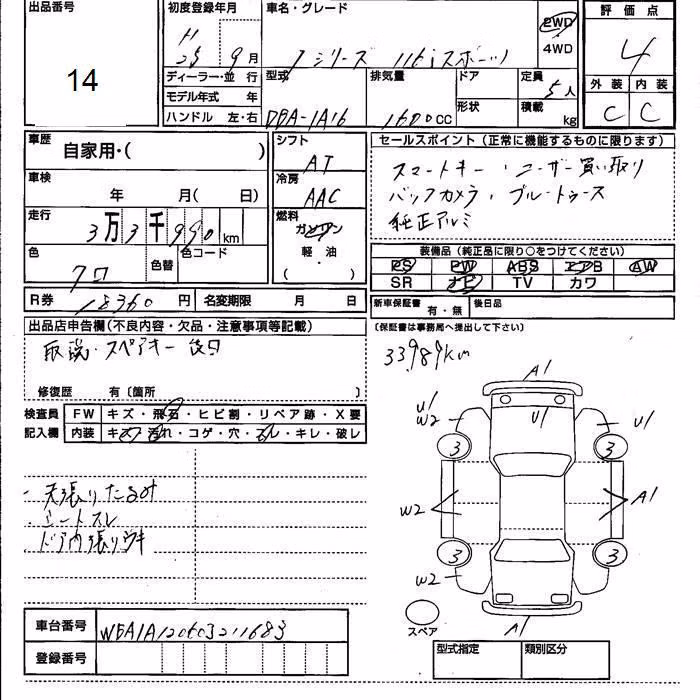 出品番号
14
初度登録年月
H
25 9月
車名・グレード
1シリーズ 116iスポーツ
2WD
4WD
評価点
4
外装 内装
C C
ディーラー・並行
モデル年式 年
ハンドル 左・右
型式
DBA-1A16
排気量
1600cc
ドア
形状
定員
5人
積載
kg
車歴
自家用・( )
車検
年 月( 日)
走行
3万3千990km
色
クロ
色替
色コード
シフト
AT
冷房
AAC
燃料
ガソリン
軽油
( )
セールスポイント(正常に機能するものに限ります)
スマートキー・ユーザー買い取り
バックカメラ・ブルートゥース
純正アルミ
装備品(純正品に限り○をつけてください)
PS PW ABS エアB AW
SR ナビ TV カワ
R券 18360円
名変期限 月 日
新車保証書 有・無
後日品
(保証書は事務局へ提出して下さい)
出品店申告欄(不良内容・欠品・注意事項等記載)
取説・スペアキー後日
修復歴 有〔箇所 〕
33989km
検査員
記入欄
FW キズ・飛石・ヒビ割・リペア跡・X要
内装 キズ・汚れ・コゲ・穴・スレ・キレ・破レ
・天張りたるみ
・シートスレ
・ドア内張りウキ
A1
U1
W2
U1
U1
3
3
W2
A1
3
3
W2
A1
スペア
車台番号
登録番号
型式指定
類別区分